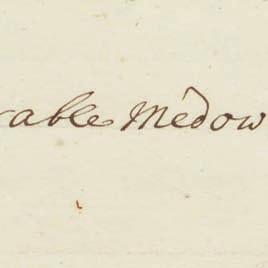 rable Medow